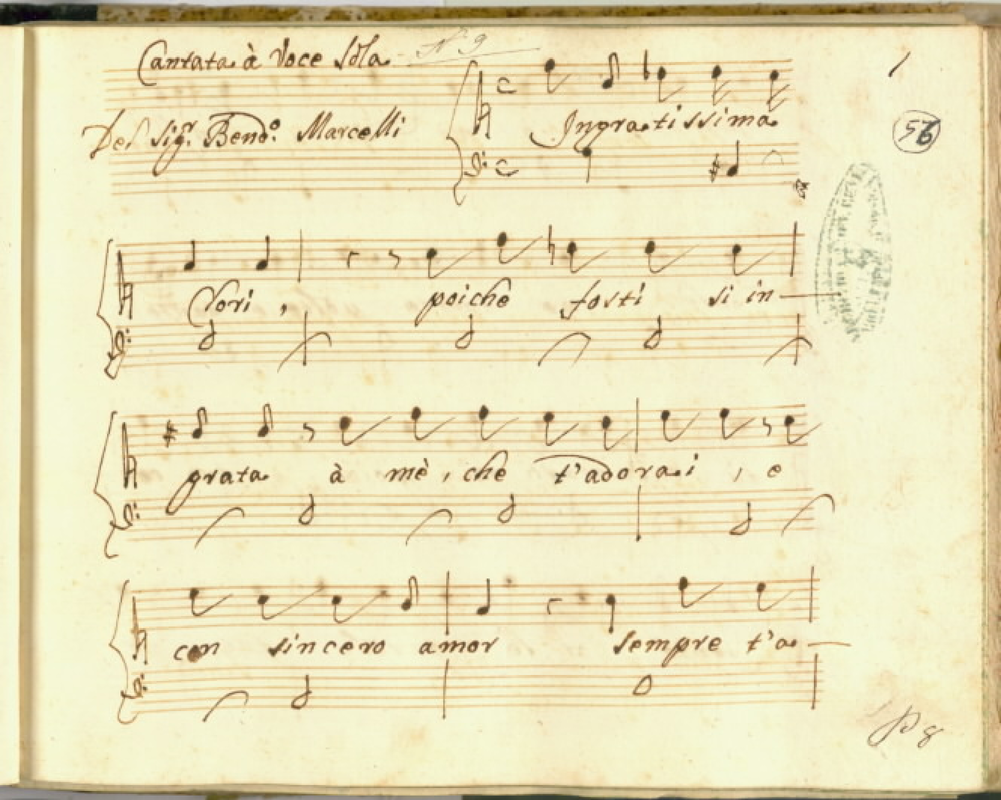 Cantata à Voce Sola N. 9
1
Del Sigr. Bendo. Marcelli
Ingratissima
56
Clori, poichè fosti si in-
grata à mè, chè t'adorai, e
con sincero amor sempre t'a-